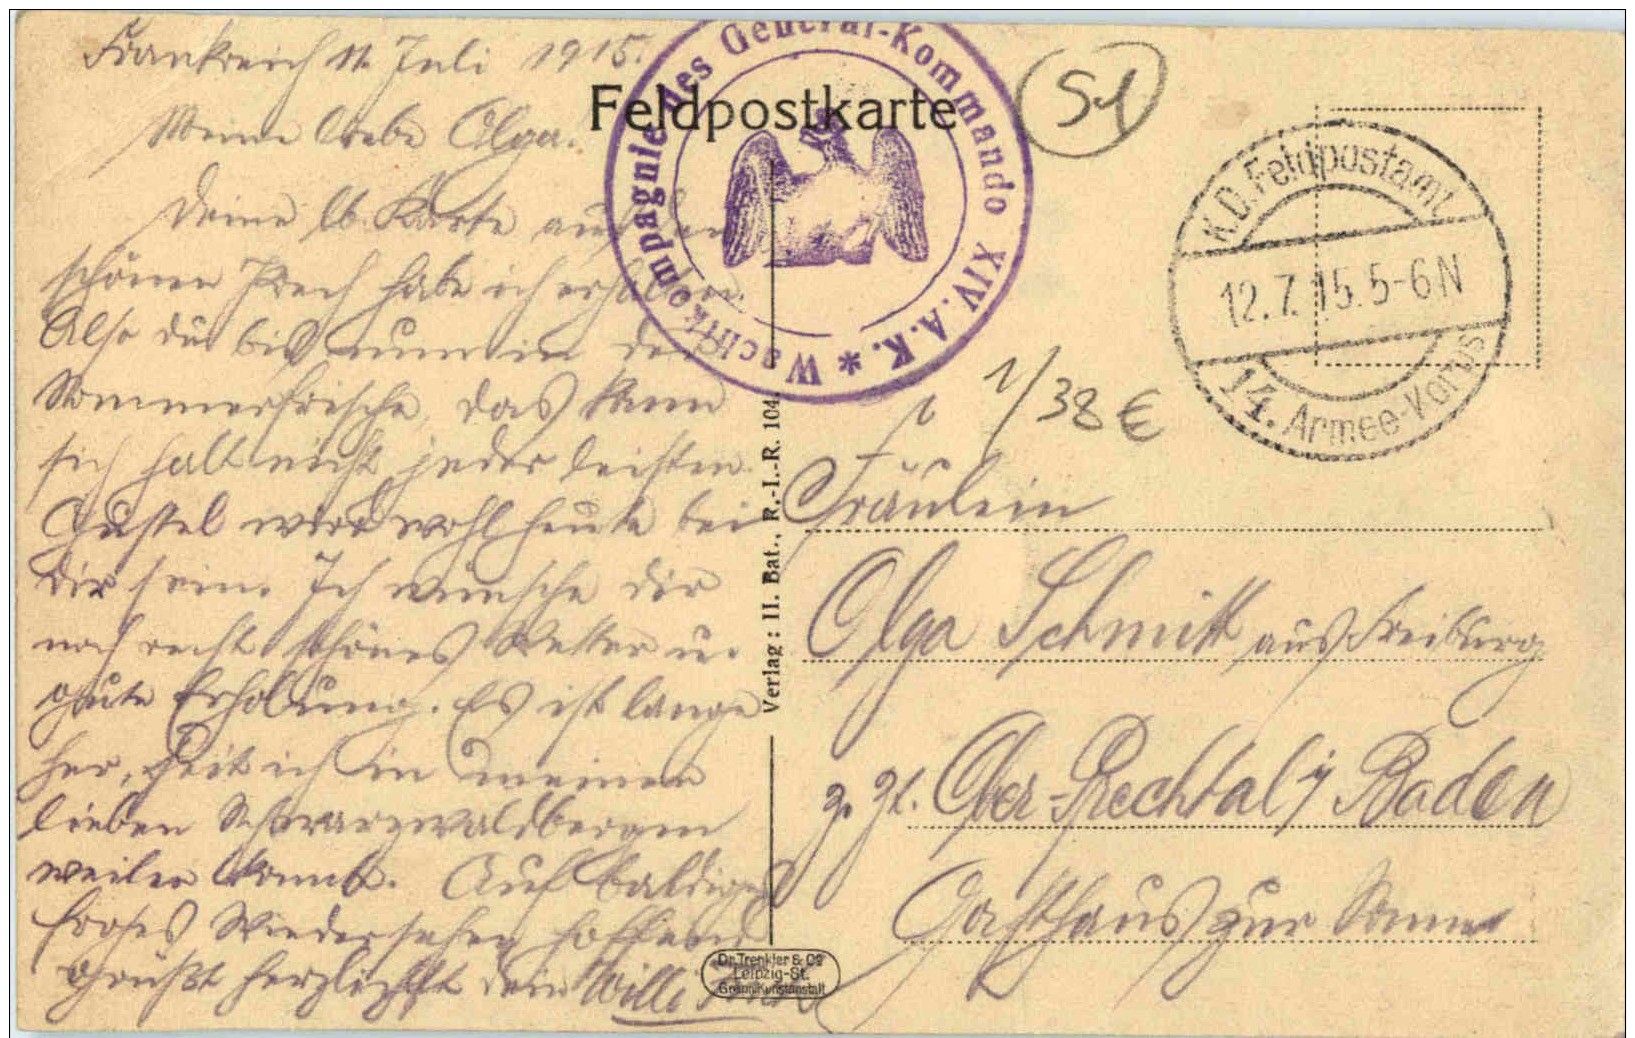 Frankreich 11. Juli 1915.
Feldpostkarte
Meine liebe Olga.
Deine lb. Karte aus dem
schönen Prech habe ich erhalten.
Also du bist nun in der
Sommerfrische, das kann
sich halt nicht jeder leisten.
Gustel wird wohl heute bei
dir sein. Ich wünsche dir
noch recht schönes Wetter u.
gute Erholung. Es ist lange
her, seit ich in meinen
lieben Schwarzwaldbergen
weilen konnte. Auf baldiges
frohes Wiedersehen hoffend
grüßt herzlichst dein Willi
Wachtkompagnie des General-Kommando XIV. A. K. *
51
K.D. Feldpostamt
12.7.15. 5-6N
14. Armee-Korps
1/38 €
Verlag: II. Bat., R.-I.-R. 104.
Fräulein
Olga Schmitt aus Freiburg
z. Zt. Ober-Prechtal i/ Baden
Gasthaus zur Sonne
Dr. Trenkler & Co
Leipzig-St.
Graph. Kunstanstalt